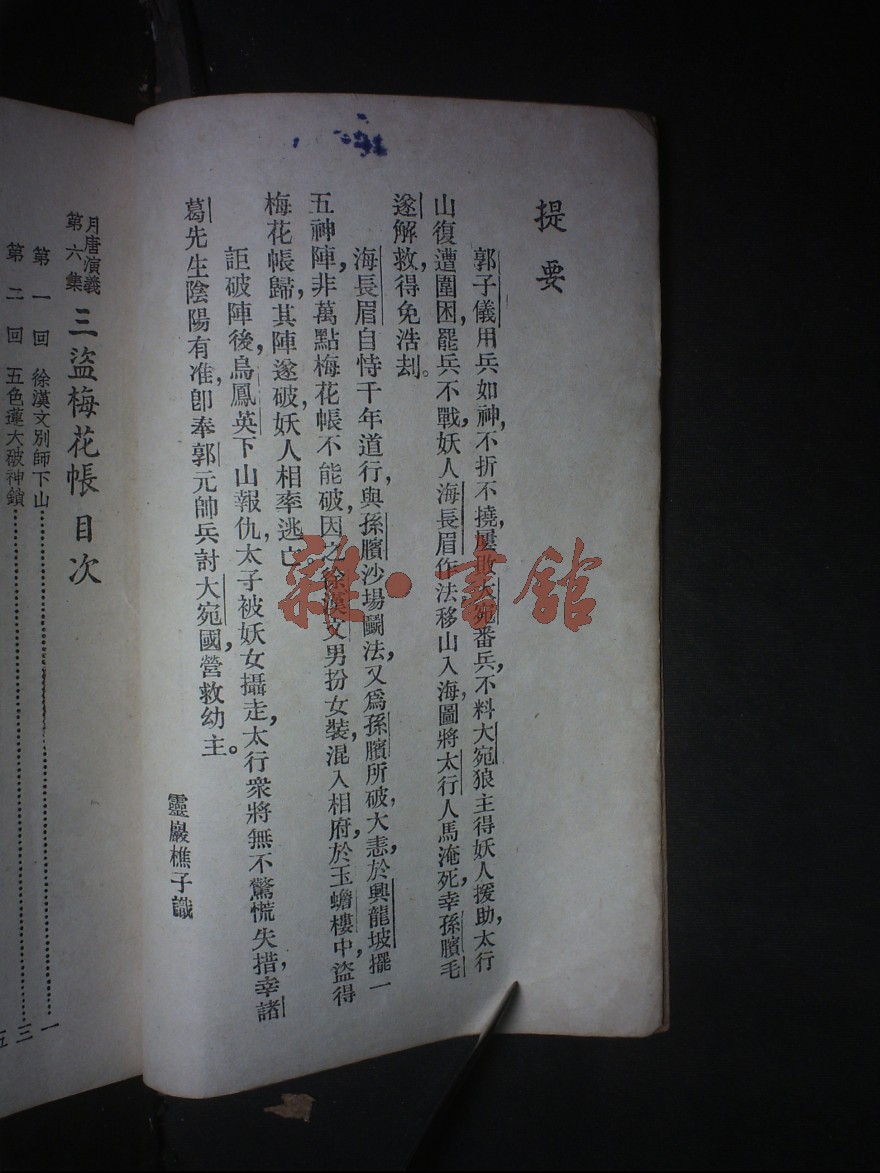 提要
郭子儀用兵如神，不折不撓，屢敗大宛番兵，不料大宛狼主得妖人援助，太行
山復遭圍困，罷兵不戰，妖人海長眉作法移山入海，圖將太行人馬淹死，幸孫臏毛
遂解救，得免浩刦。
海長眉自恃千年道行，與孫臏沙場鬭法，又爲孫臏所破，大恚，於興龍坡擺一
五神陣，非萬點梅花帳不能破，因之徐漢文男扮女裝，混入相府，於玉蟾樓中，盜得
梅花帳歸，其陣遂破，妖人相率逃亡。
詎破陣後，烏鳳英下山報仇，太子被妖女攝走，太行衆將無不驚慌失措，幸諸
葛先生陰陽有准，卽奉郭元帥兵討大宛國，營救幼主。
靈巖樵子識
月唐演義
第六集
三盜梅花帳 目次
第一回 徐漢文別師下山 一
第二回 五色蓮大破神鎖 三
五
雜·書館